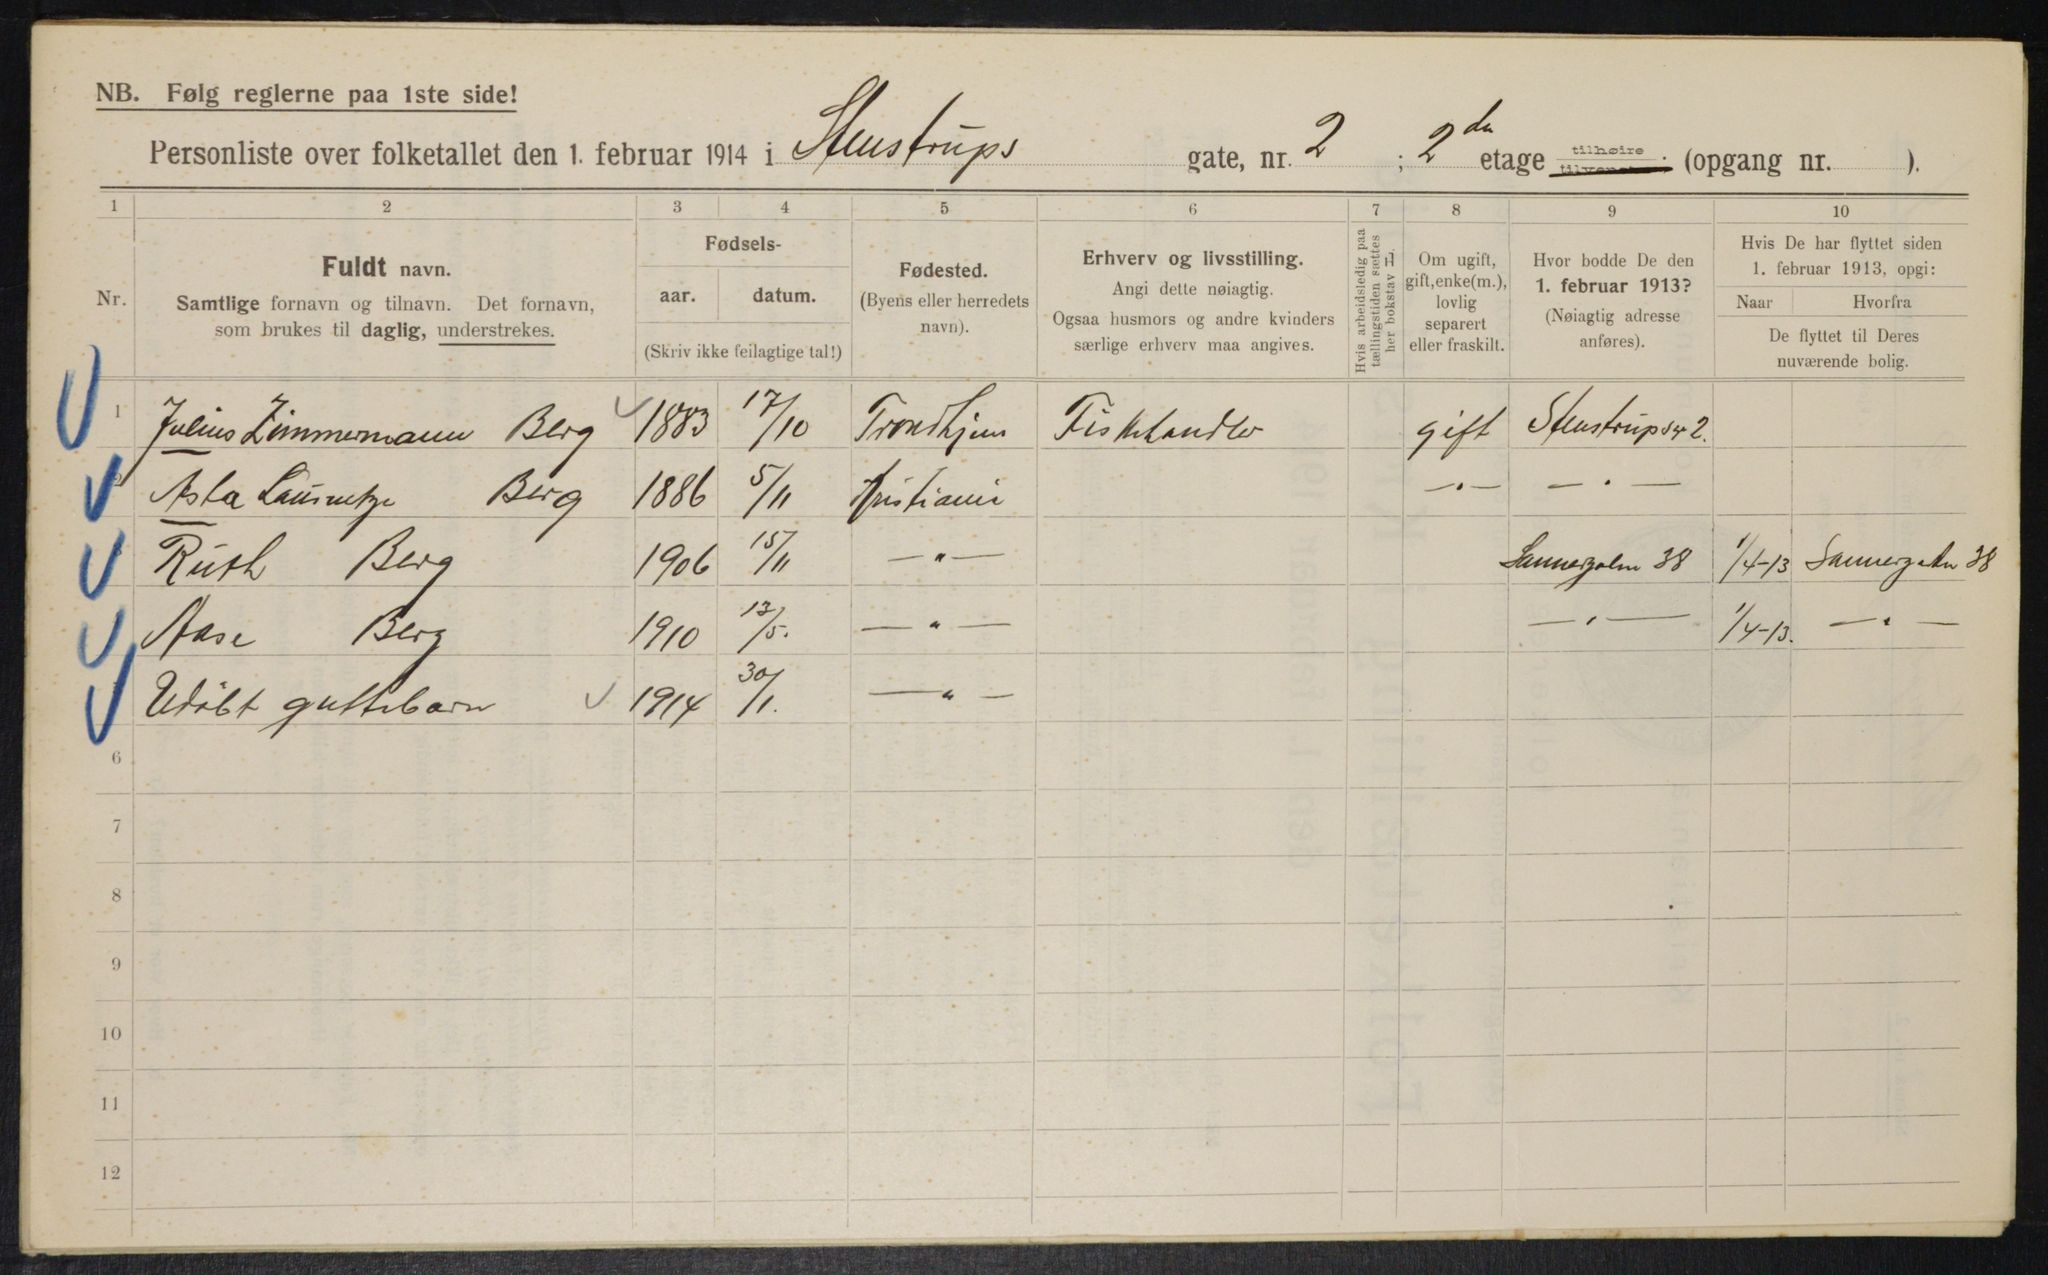 NB. Følg reglerne paa 1ste side!
Personliste over folketallet den 1. februar 1914 i Stenstrups gate, nr. 2 ; 2den etage tilhøire (opgang nr. ).
1 2 3 4 5 6 7 8 9 10
Nr.
Fuldt navn.
Samtlige fornavn og tilnavn. Det fornavn,
som brukes til daglig, understrekes.
Fødsels-
aar. datum.
(Skriv ikke feilagtige tal!)
Fødested.
(Byens eller herredets
navn).
Erhverv og livsstilling.
Angi dette nøiagtig.
Ogsaa husmors og andre kvinders
særlige erhverv maa angives.
Hvis arbeidsledig paa
tællingstiden sættes
her bokstav L.
Om ugift,
gift, enke(m.),
lovlig
separert
eller fraskilt.
Hvor bodde De den
1. februar 1913?
(Nøiagtig adresse
anføres).
Hvis De har flyttet siden
1. februar 1913, opgi:
Naar Hvorfra
De flyttet til Deres
nuværende bolig.
1 Julius Zimmermann Berg 1883 17/10 Trondhjem Fiskehandler gift Stenstrupsgt 2.
Asta Berg 1886 5/11 Kristiania — " — — " —
Ruth Berg 1906 15/11 — " — Sannergaten 38 1/4-13 Sannergaten 38
Aase Berg 1910 13/5. — " — — " — 1/4-13. — " —
Udøbt guttebarn 1914 30/1. — " —
6
7
8
9
10
11
12